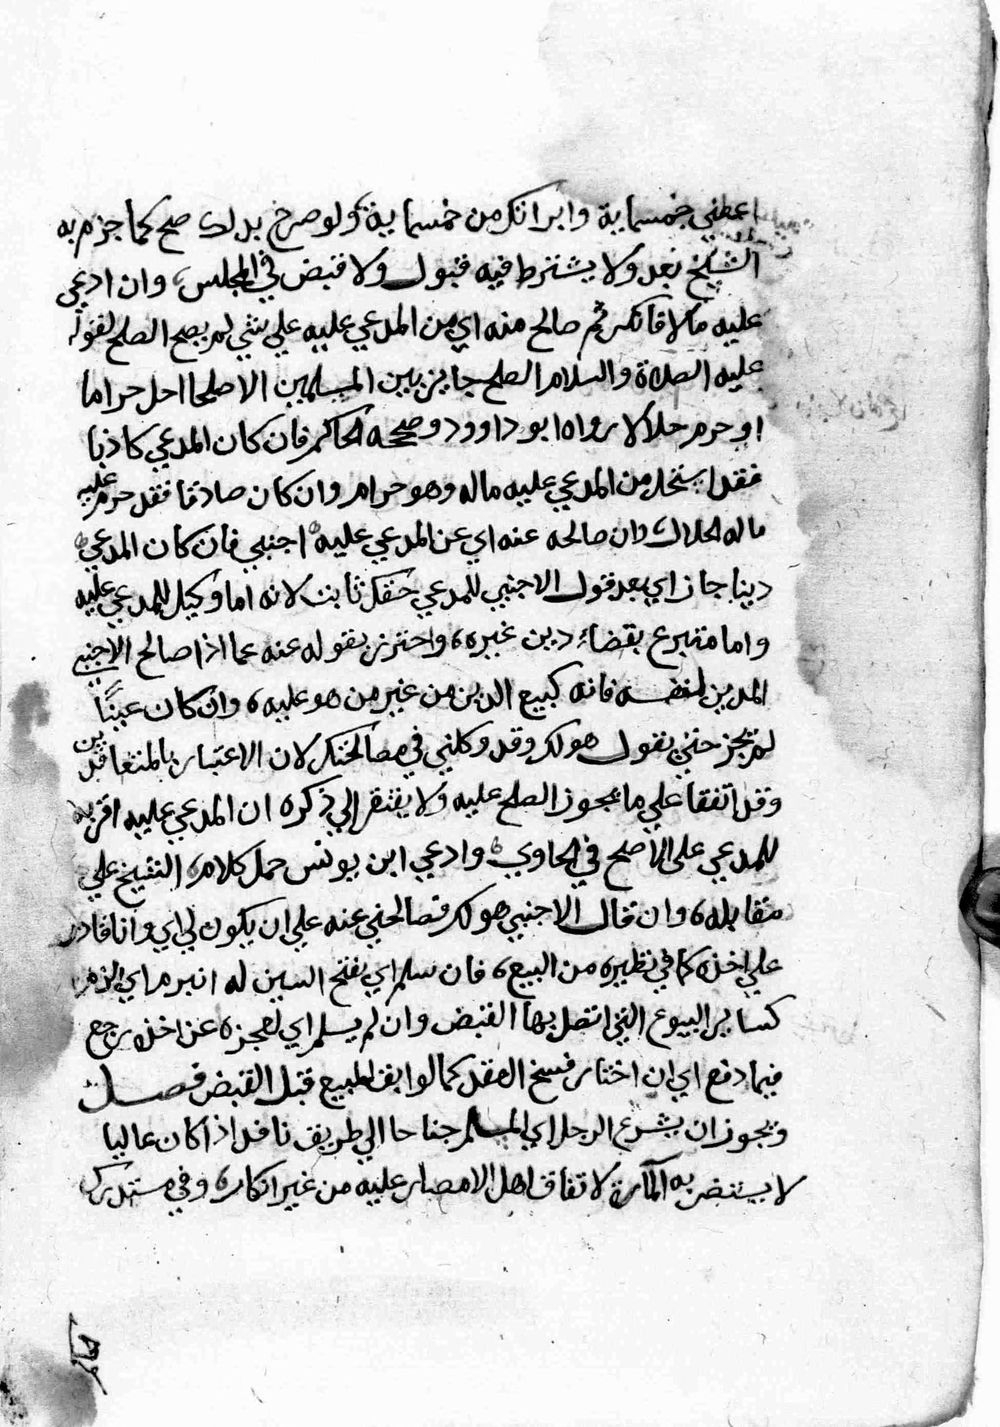 اعطني خمسماية وابراتك من خمسماية ولو صرح بذلك صح كما جزم به
الشيخ بعد ولا يشترط فيه قبول ولا قبض في المجلس، وان ادعي
عليه مالا فانكر ثم صالح منه اي من المدعي عليه علي شي لم يصح الصلح لقوله
عليه الصلاة والسلام الصلح جايز بين المسلمين الا صلحا احل حراما
او حرم حلالا رواه ابو داوود وصححه الحاكم فان كان المدعي كاذبا
فقد استحل من المدعي عليه ماله وهو حرام وان كان صادقا فقد حرم عليه
ماله الحلال وان صالحه عنه اي عن المدعي عليه اجنبي فان كان المدعي
دينا جاز اي بعد قول الاجنبي للمدعي حقك ثابت لانه اما وكيل للمدعي عليه
واما متبرع بقضاء دين غيره، واحترز بقوله عنه عما اذا صالح الاجنبي
المدين لنفسه فانه كبيع الدين من غير من هو عليه، وان كان عينًا
لم يجز حتي يقول هو لك وقد وكلني في مصالحتك لان الاعتبار بالمتعاقدين
وقد اتفقا علي ما يجوز الصلح عليه ولا يفتقر الي ذكره ان المدعي عليه اقر به
للمدعي علي الاصح في الحاوي وادعي ابن يونس حمل كلام الشيخ علي
مقابله، وان قال الاجنبي هو لك فصالحني عنه علي ان يكون لي اي وانا قادر
علي اخذه كما في نظيره من البيع، فان سلم اي بفتح السين له انبرم اي لزم
كساير البيوع التي اتصل بها القبض وان لم يسلم اي لعجزه عن اخذه رجع
فيما دفع اي ان اختار فسخ العقد كما لو ابق المبيع قبل القبض فصل
ويجوز ان يشرع الرجل اي المسلم جناحا الي طريق نافذ اذا كان عاليا
لا يستضر به المارة لاتفاق اهل الامصار عليه من غير انكار، وفي مستدرك